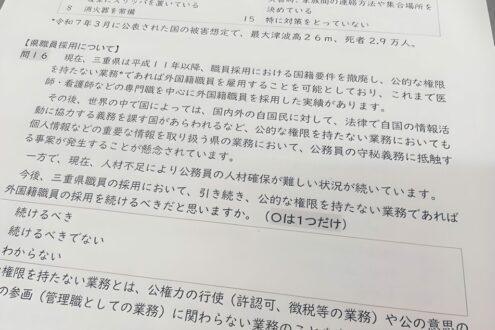 スリッパを置いている
8 消火器を常備
家族間の連絡方法や集合場所を
決めている
15 特に対策をとっていない
*令和7年3月に公表された国の被害想定で、最大津波高26m、死者2.9万人。
【県職員採用について】
問16 現在、三重県は平成11年以降、職員採用における国籍要件を撤廃し、公的な権限
を持たない業務*であれば外国籍職員を雇用することを可能としており、これまで医
師・看護師などの専門職を中心に外国籍職員を採用した実績があります。
その後、世界の中で国によっては、国内外の自国民に対して、法律で自国の情報活
動に協力する義務を課す国があらわれるなど、公的な権限を持たない業務においても
個人情報などの重要な情報を取り扱う県の業務において、公務員の守秘義務に抵触す
る事案が発生することが懸念されています。
一方で、現在、人材不足により公務員の人材確保が難しい状況が続いています。
今後、三重県職員の採用において、引き続き、公的な権限を持たない業務であれば
外国籍職員の採用を続けるべきだと思いますか。(○は1つだけ)
続けるべき
続けるべきでない
わからない
権限を持たない業務とは、公権力の行使(許認可、徴税等の業務)や公の意思の
の参画(管理職としての業務)に関わらない業務のこと